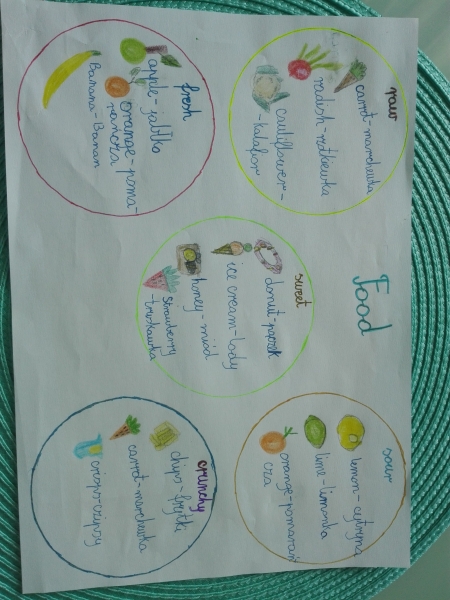 Food
raw
carrot-marchewka
radish-rzodkiewka
cauliflower-
-kalafior
sour
lemon-cytryna
lime-limonka
orange-pomarań
cza
sweet
donut-pączek
ice cream-lody
honey-miód
strawberry
-truskawka
fresh
apple-jabłko
orange-poma-
rańcza
Banana-Banan
crunchy
chips-frytki
carrot-marchewka
crisps-czipsy